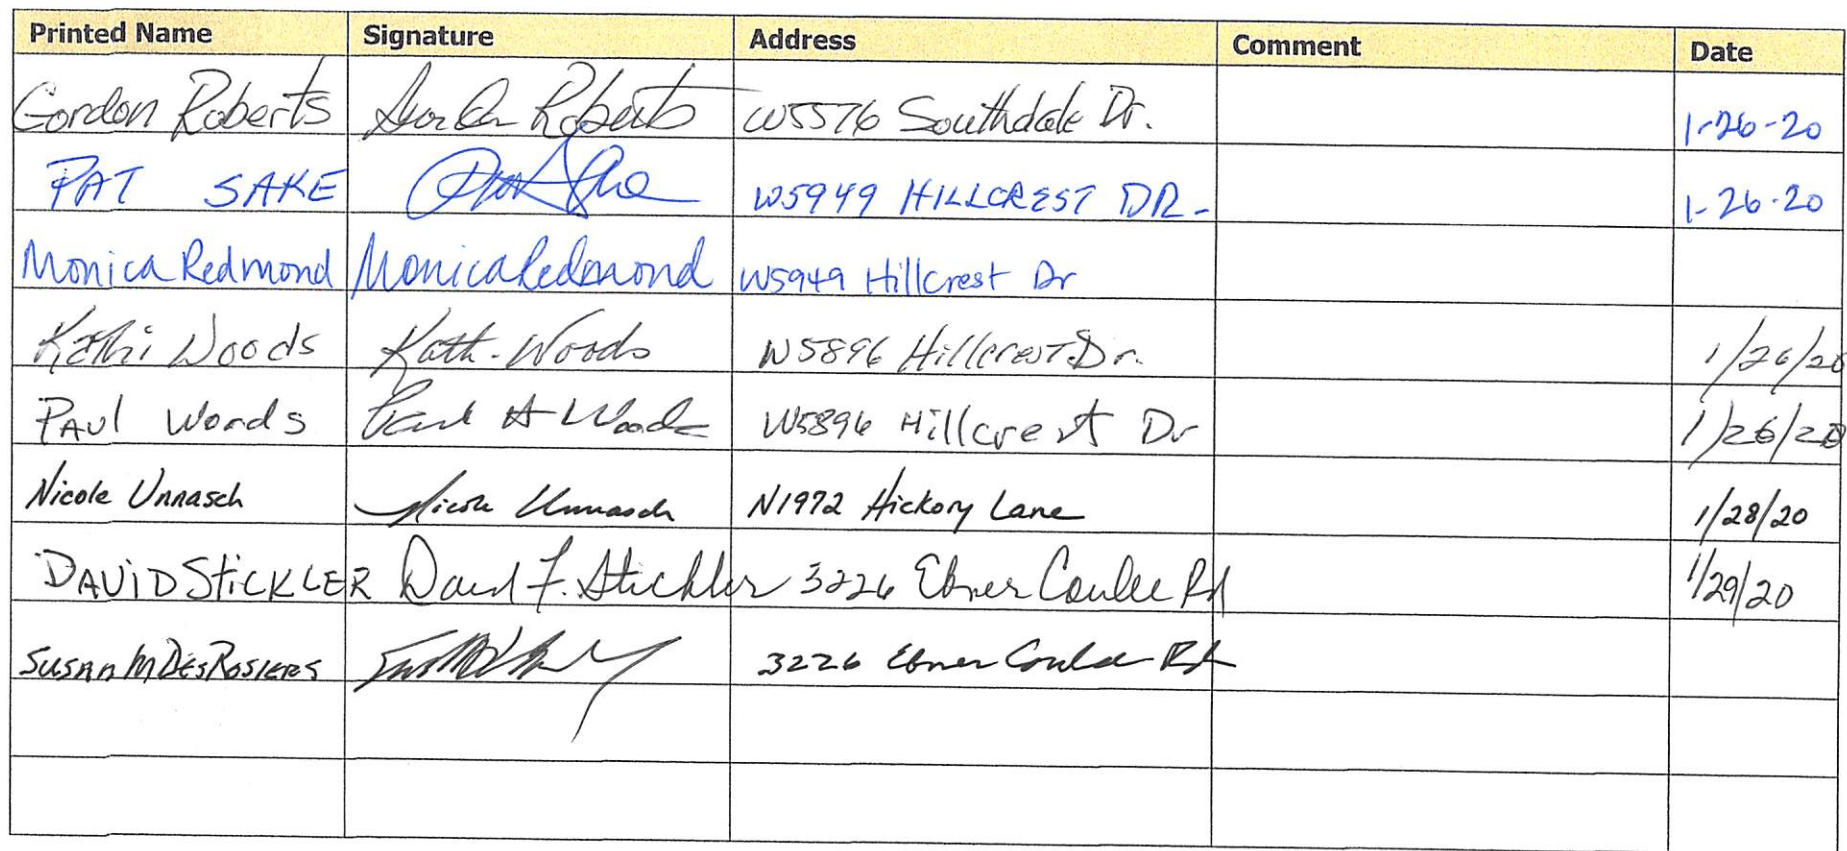 Printed Name Signature Address Comment Date
Gordon Roberts Gordon Roberts W5576 Southdale Dr. 1-26-20
PAT SAKE W5949 HILLCREST DR- 1-26-20
Monica Redmond Monica Redmond W5949 Hillcrest Dr
Kathi Woods Kathi Woods W5896 Hillcrest Dr. 1/26/20
PAul Woods Paul A Woods W5896 Hillcrest Dr 1/26/20
Nicole Unnasch Nicole Unnasch N1972 Hickory Lane 1/28/20
DAViD StiCKLER David F. Stickler 3226 Ebner Coulee Rd 1/29/20
SUSAN M DESROSIERS 3226 Ebner Coulee Rd